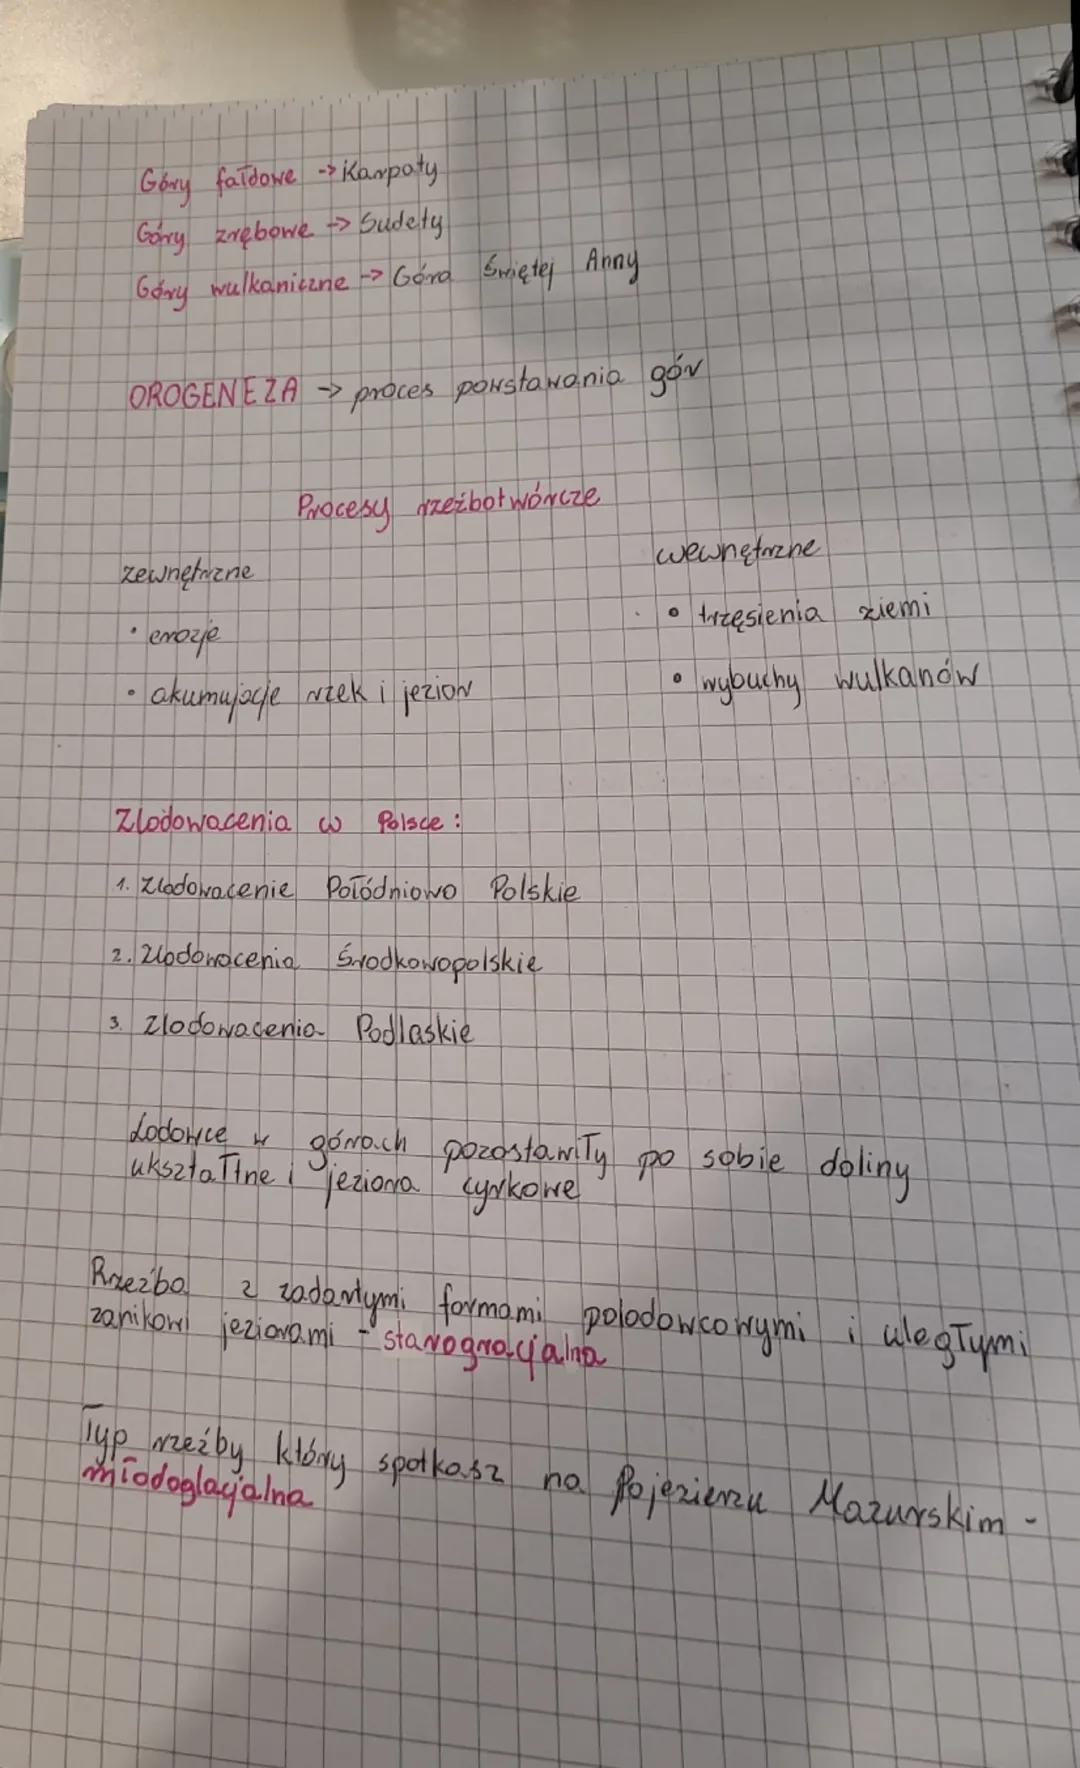 Góry fałdowe -> Karpaty
Góry zrębowe -> Sudety
Góry wulkaniczne -> Góra Świętej Anny
OROGENEZA -> proces powstawania gór
Procesy rzeźbotwórcze
zewnętrzne
wewnętrzne
• erozje
• trzęsienia ziemi
• akumujacje rzek i jezior
• wybuchy wulkanów
Zlodowacenia w Polsce:
1. Zlodowacenie Połódniowo Polskie
2. Zlodowacenia Środkowopolskie
3. Zlodowacenia Podlaskie
Lodowce w górach pozostawiły po sobie doliny
ukształtne i jeziora cyrkowe
Rzeźba z zadartymi formami polodowcowymi i uległymi
zanikowi jeziorami - starogracjalna
Typ rzeźby który spotkasz na Pojezierzu Mazurskim -
młodoglacjalna